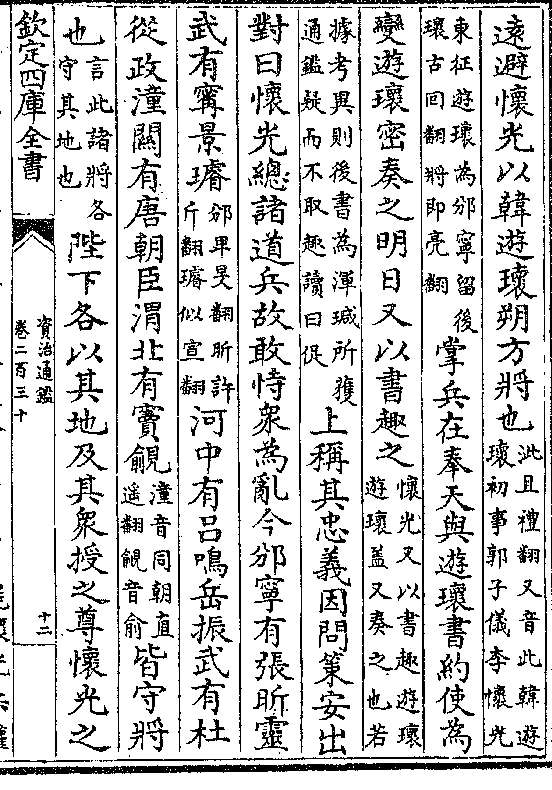 遠避懷光以韓遊瓌朔方將也泚且禮翻又音此韓遊
瓌初事郭子儀李懷光
東征遊瓌為邠寧留後
瓌古回翻將即亮翻掌兵在奉天與遊瓌書約使為
變遊瓌密奏之明日又以書趣之懷光又以書趣遊瓌
遊瓌蓋又奏之也若
據考異則後書為渾瑊所獲
通鑑疑而不取趣讀曰促上稱其忠義因問策安出
對曰懷光總諸道兵故敢恃衆為亂今邠寧有張昕靈
武有寗景璿邠卑旻翻昕許
斤翻璿似宣翻河中有吕鳴岳振武有杜
從政潼關有唐朝臣渭北有竇覦潼音同朝直
遥翻覦音俞皆守將
也言此諸將各
守其地也陛下各以其地及其衆授之尊懷光之
欽定四庫全書
資治通鑑
卷二百三十
十二